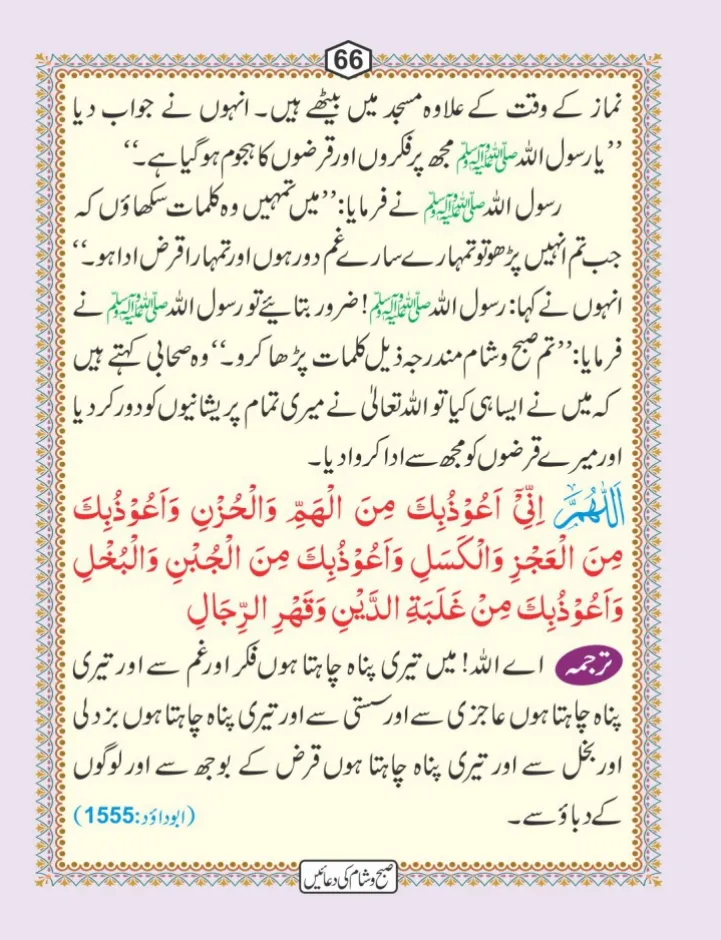 66
نماز کے وقت کے علاوہ مسجد میں بیٹھے ہیں۔ انہوں نے جواب دیا
’’یا رسول اللہ ﷺ مجھ پر فکروں اور قرضوں کا ہجوم ہو گیا ہے۔‘‘
رسول اللہ ﷺ نے فرمایا: ’’میں تمہیں وہ کلمات سکھاؤں کہ
جب تم انہیں پڑھو تو تمہارے سارے غم دور ہوں اور تمہارا قرض ادا ہو۔‘‘
انہوں نے کہا: رسول اللہ ﷺ! ضرور بتائیے تو رسول اللہ ﷺ نے
فرمایا: ’’تم صبح و شام مندرجہ ذیل کلمات پڑھا کرو۔‘‘ وہ صحابی کہتے ہیں
کہ میں نے ایسا ہی کیا تو اللہ تعالیٰ نے میری تمام پریشانیوں کو دور کر دیا
اور میرے قرضوں کو مجھ سے ادا کروا دیا۔
اَللّٰهُمَّ اِنِّيْٓ اَعُوْذُبِكَ مِنَ الْهَمِّ وَالْحُزْنِ وَاَعُوْذُبِكَ
مِنَ الْعَجْزِ وَالْكَسَلِ وَاَعُوْذُبِكَ مِنَ الْجُبْنِ وَالْبُخْلِ
وَاَعُوْذُبِكَ مِنْ غَلَبَةِ الدَّيْنِ وَقَهْرِ الرِّجَالِ
ترجمہ اے اللہ! میں تیری پناہ چاہتا ہوں فکر اور غم سے اور تیری
پناہ چاہتا ہوں عاجزی سے اور سستی سے اور تیری پناہ چاہتا ہوں بزدلی
اور بخل سے اور تیری پناہ چاہتا ہوں قرض کے بوجھ سے اور لوگوں
کے دباؤ سے۔ (ابوداؤد:1555)
صبح و شام کی دعائیں